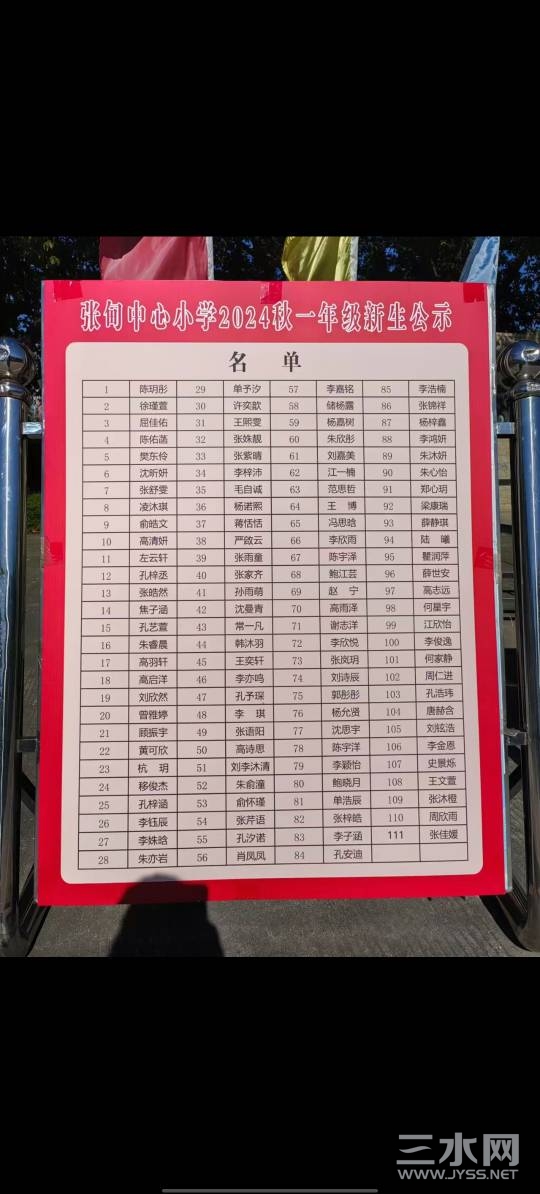 张甸中心小学2024秋一年级新生公示
名 单
1 陈玥彤 29 单予汐 57 李嘉铭 85 李浩楠
2 徐瑾萱 30 许奕歆 58 储杨露 86 张锦祥
3 屈佳佑 31 王熙雯 59 杨嘉树 87 杨梓鑫
4 陈佑菡 32 张姝靓 60 朱欣彤 88 李鸿妍
5 樊东伶 33 张紫晴 61 刘嘉美 89 朱沐妍
6 沈昕妍 34 李梓沛 62 江一楠 90 朱心怡
7 张舒雯 35 毛自诚 63 范思哲 91 郑心玥
8 凌沐琪 36 杨诺熙 64 王 博 92 梁康瑞
9 俞皓文 37 蒋恬恬 65 冯思晗 93 薛静琪
10 高清妍 38 严啟云 66 李欣雨 94 陆 曦
11 左云轩 39 张雨童 67 陈宇泽 95 瞿润萍
12 孔梓丞 40 张家齐 68 鲍江芸 96 薛世安
13 张皓然 41 孙雨萌 69 赵 宁 97 高志远
14 焦子涵 42 沈曼青 70 高雨泽 98 何星宇
15 孔艺萱 43 常一凡 71 谢志洋 99 江欣怡
16 朱睿晨 44 韩沐羽 72 李欣悦 100 李俊逸
17 高羽轩 45 王奕轩 73 张岚玥 101 何家静
18 高启洋 46 李亦鸣 74 刘诗辰 102 周仁进
19 刘欣然 47 孔予琛 75 郭彤彤 103 孔浩玮
20 曾雅婷 48 李 琪 76 杨允贤 104 唐赫含
21 顾振宇 49 张语阳 77 沈思宇 105 刘铉浩
22 黄可欣 50 高诗思 78 陈宇洋 106 李金恩
23 杭 玥 51 刘李沐清 79 李颖怡 107 史景烁
24 移俊杰 52 朱俞潼 80 鲍晓月 108 王文萱
25 孔梓涵 53 俞怀瑾 81 单浩辰 109 张沐橙
26 李钰辰 54 张芹语 82 张梓皓 110 周欣雨
27 李姝晗 55 孔汐诺 83 李子涵 111 张佳媛
28 朱亦岩 56 肖凤凤 84 孔安迪
三水网
WWW.JYSS.NET